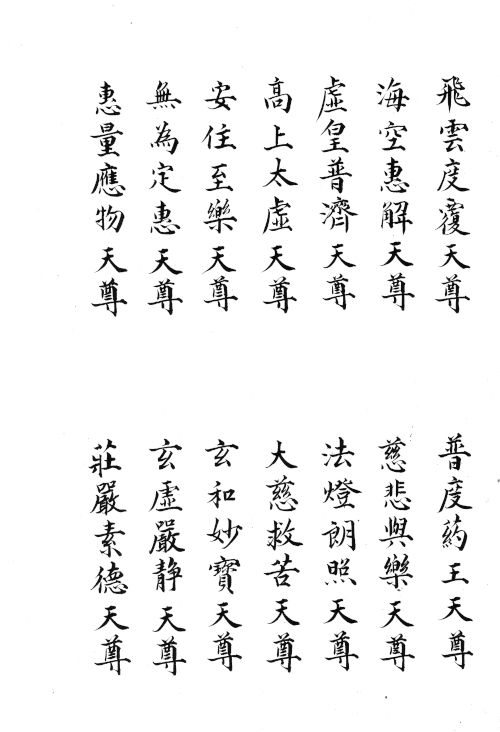 飛雲度覆天尊
海空惠解天尊
虛皇普濟天尊
高上太虛天尊
安住至樂天尊
無為定惠天尊
惠量應物天尊
普度藥王天尊
慈悲與樂天尊
法燈朗照天尊
大慈救苦天尊
玄和妙寶天尊
玄虛嚴静天尊
莊嚴素德天尊